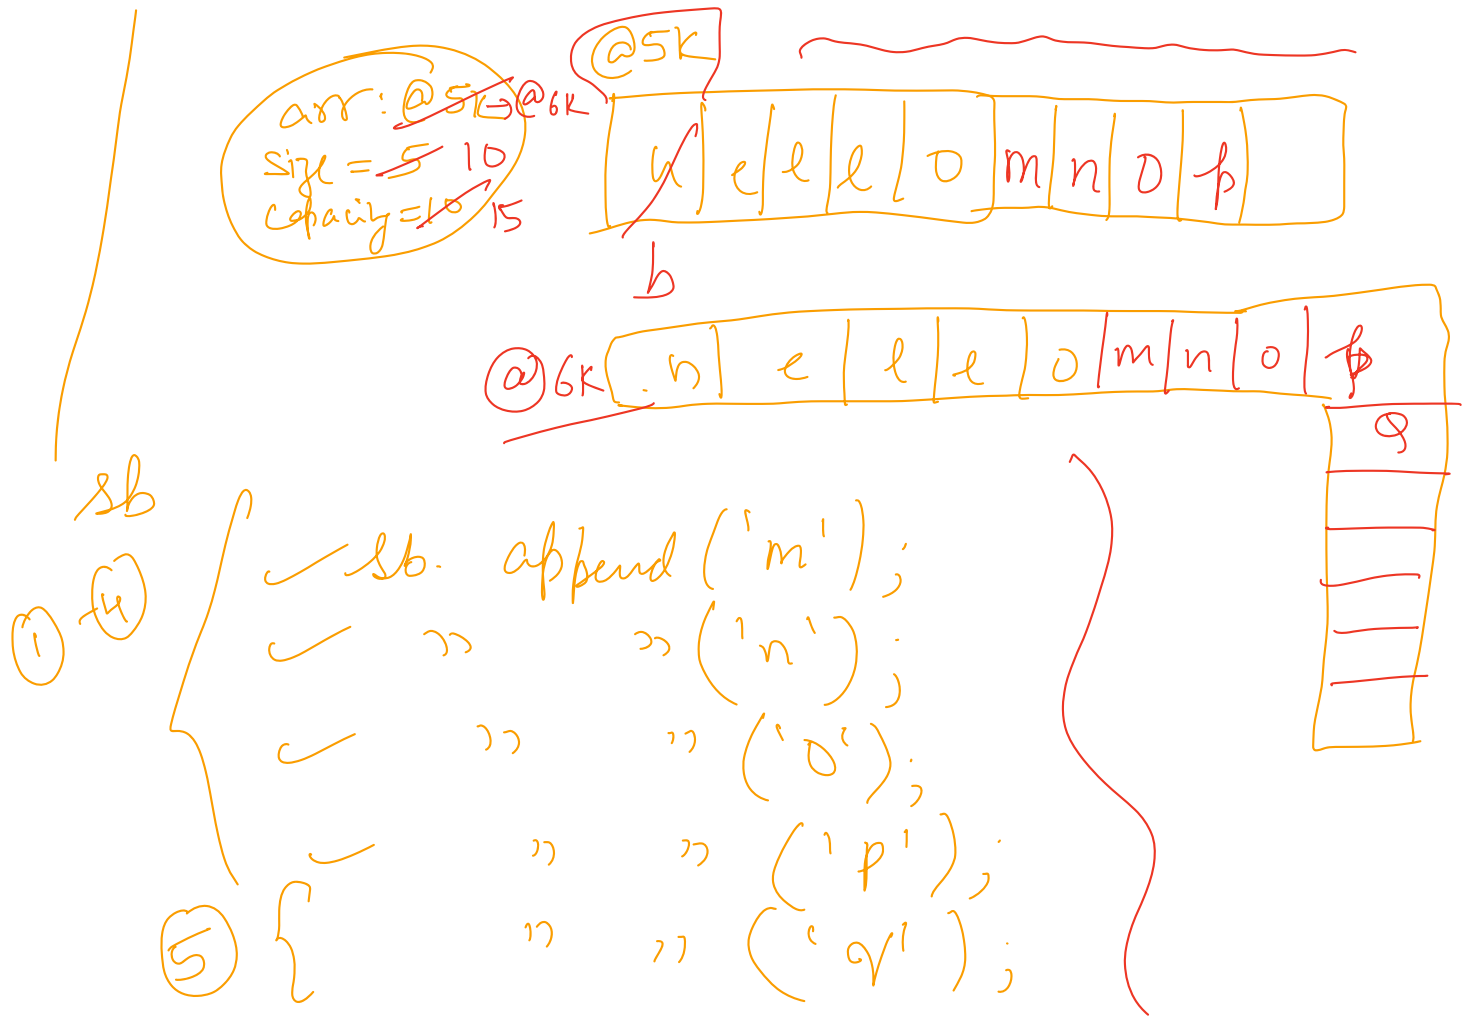 @5K
arr : @5K → @6K
size = 5 10
capacity = 10 15
h e l l o m n o p
b
@6K h e l l o m n o p
Q
sb
① - ④
sb. append ('m');
" " ('n');
" " ('o');
" " ('p');
⑤ " " ('q');